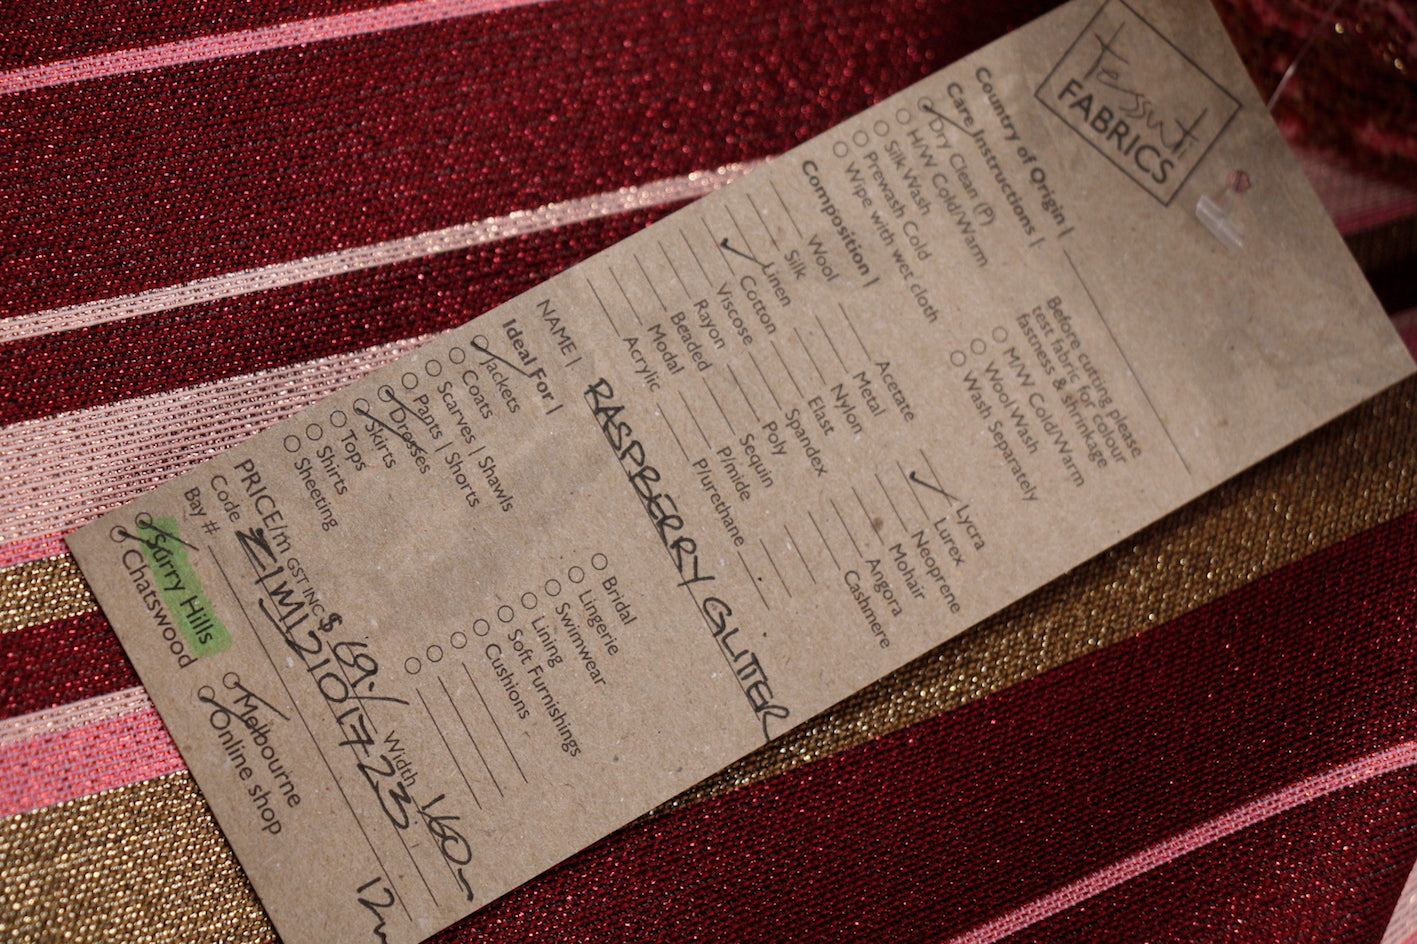 tessuti
FABRICS
Country of Origin |
Care Instructions |
Dry Clean (P)
H/W Cold/Warm
Silk Wash
Prewash Cold
Wipe with wet cloth
Before cutting please
test fabric for colour
fastness & shrinkage
M/W Cold/Warm
Wool Wash
Wash Separately
Composition |
Wool
Silk
Linen
Cotton
Viscose
Rayon
Beaded
Modal
Acrylic
Acetate
Metal
Nylon
Elast
Spandex
Poly
Sequin
P/mide
P/urethane
Lycra
Lurex
Neoprene
Mohair
Angora
Cashmere
NAME | RASPBERRY GLITTER
Ideal For |
Jackets
Coats
Scarves | Shawls
Pants | Shorts
Dresses
Skirts
Tops
Shirts
Sheeting
Bridal
Lingerie
Swimwear
Lining
Soft Furnishings
Cushions
PRICE/m GST INC $ 69./ Width 160
Code Z1WM121017723
Bay # 12m
Surry Hills
Chatswood
Melbourne
Online shop